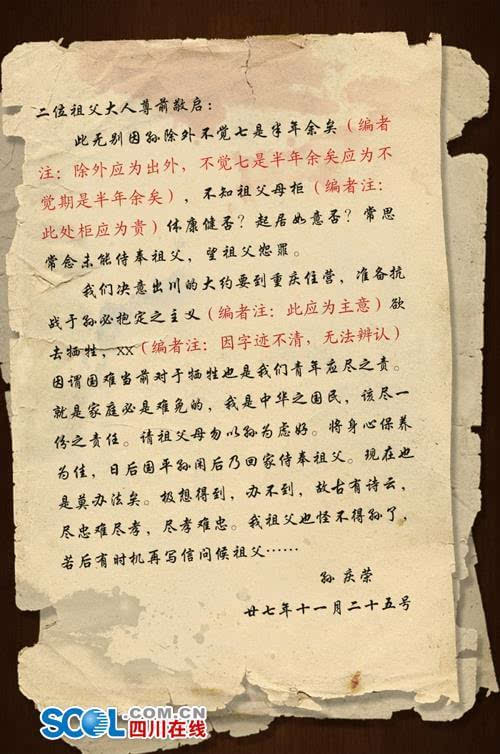 二位祖父大人尊前敬启：
此无别因孙除外不觉七是半年余矣（编者
注：除外应为出外，不觉七是半年余矣应为不
觉期是半年余矣），不知祖父母柜（编者注：
此处柜应为贵）体康健否？起居如意否？常思
常念未能侍奉祖父，望祖父恕罪。
我们决意出川的大约要到重庆住营，准备抗
战于孙必抱定之主义（编者注：此应为主意）欲
去牺牲，xx（编者注：因字迹不清，无法辨认）
因谓国难当前对于牺牲也是我们青年应尽之责。
就是家庭必是难免的，我是中华之国民，该尽一
份之责任。请祖父母勿以孙为虑好。将身心保养
为佳，日后国平孙闲后乃回家侍奉祖父。现在也
是莫办法矣。极想得到，办不到，故古有诗云，
尽忠难尽孝，尽孝难忠。我祖父也怪不得孙了，
若后有时机再写信问候祖父……
孙 庆荣
廿七年十一月二十五号
SCOL.COM.CN
四川在线